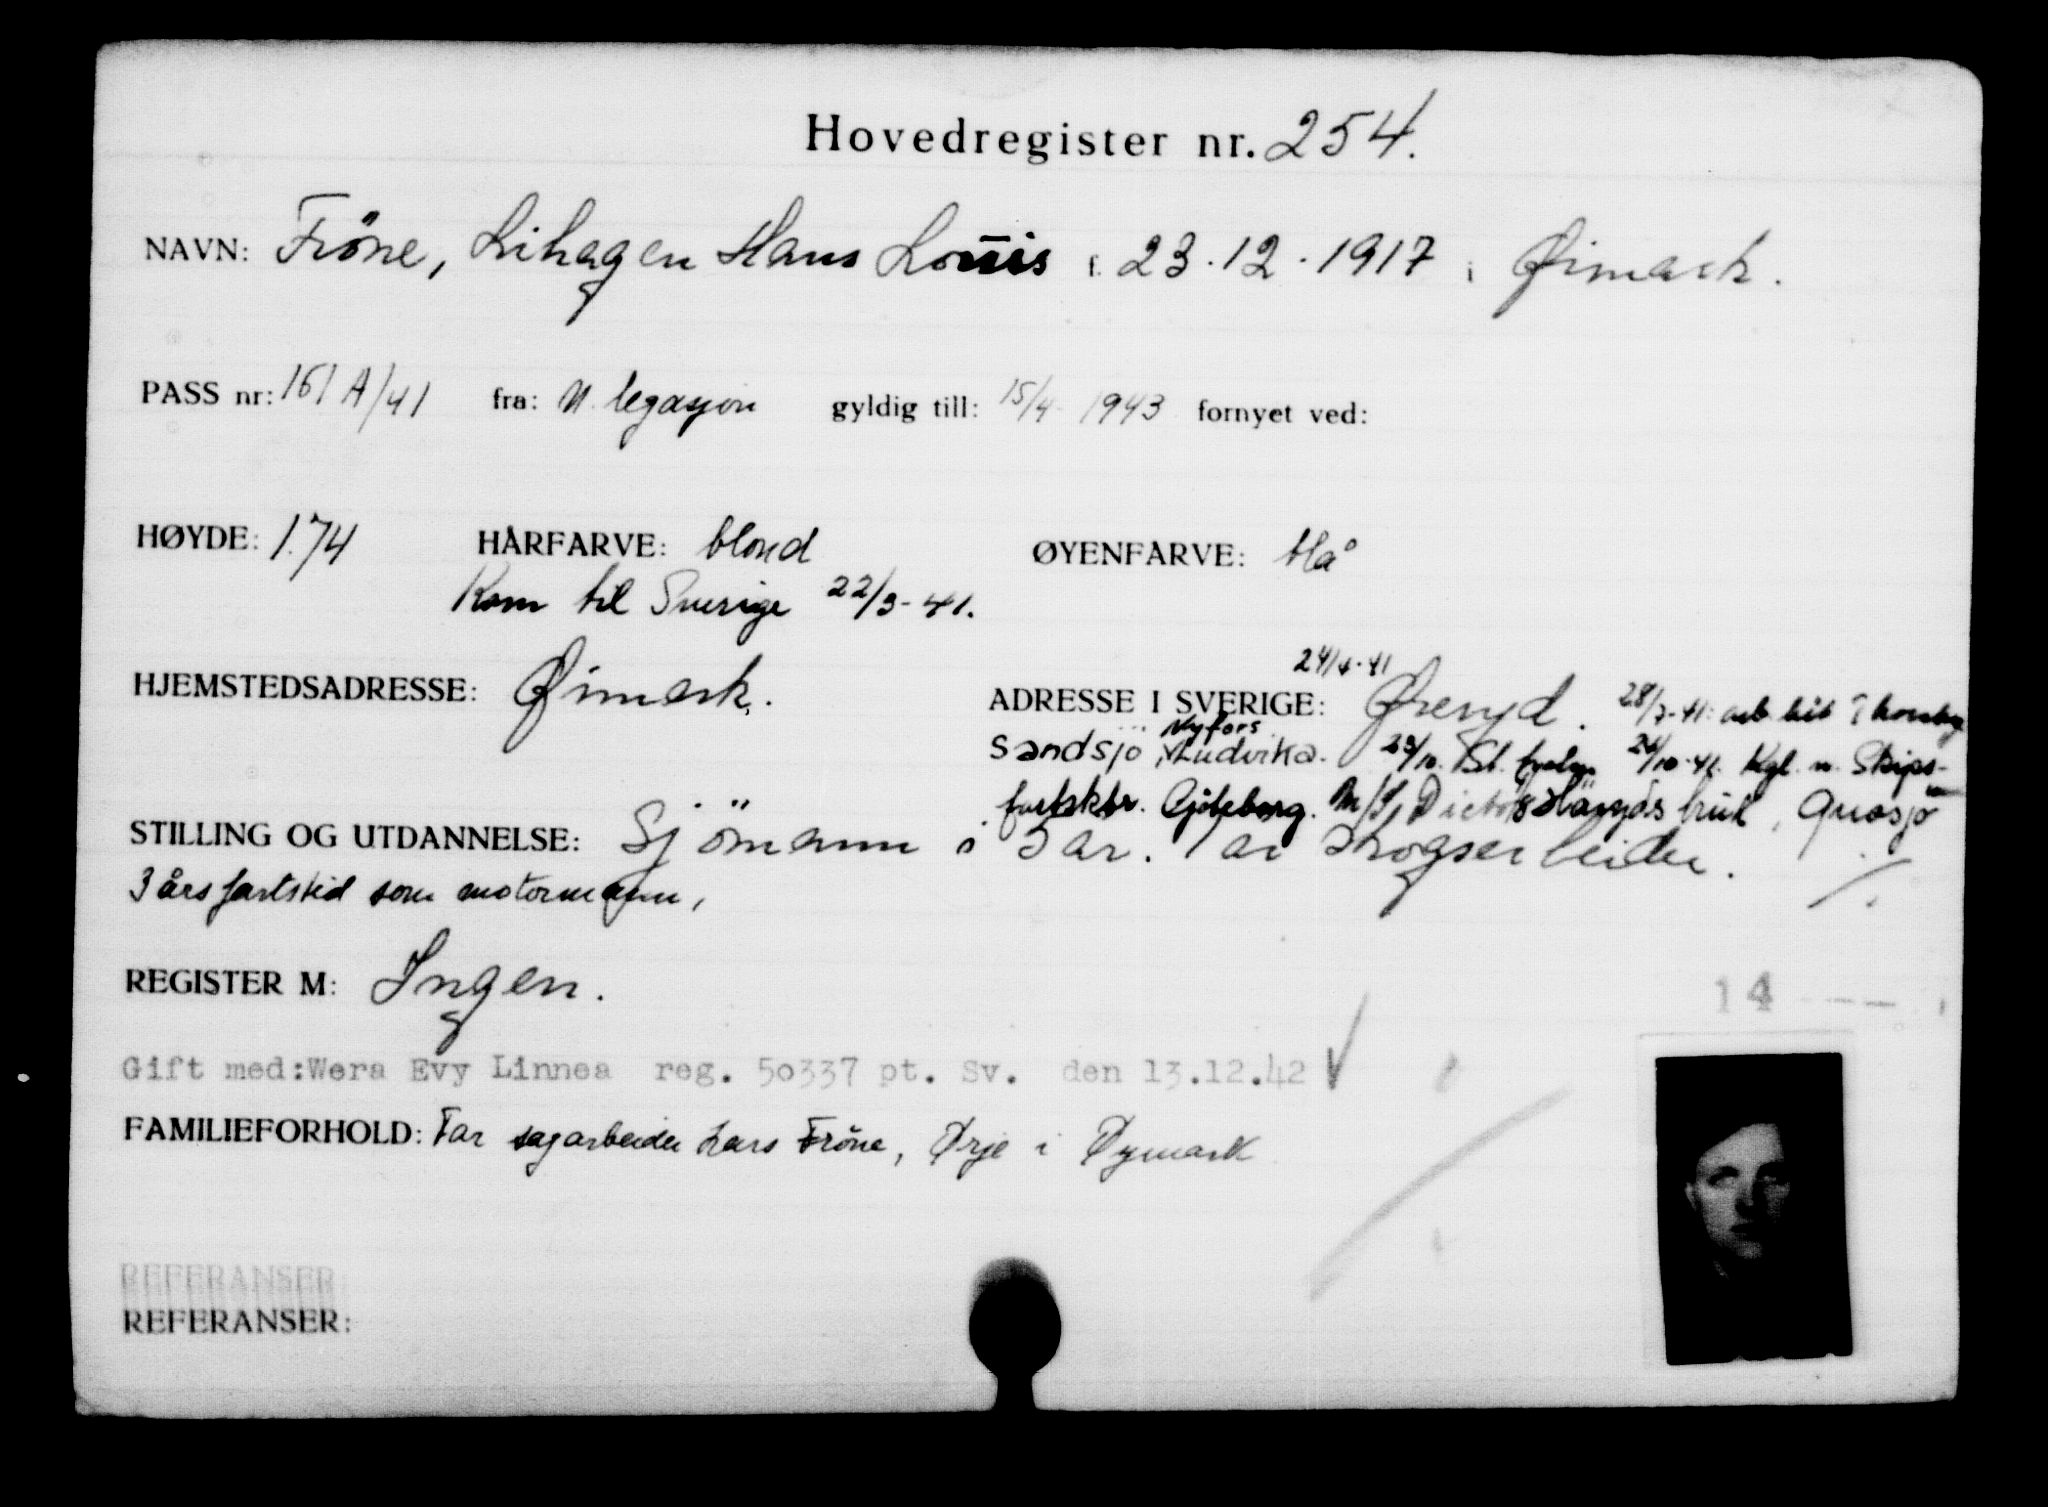 Hovedregister nr. 254.
NAVN: Fröne, Lihagen Hans Louis f. 23.12.1917 i Øimark.
PASS nr: 161 A/41 fra: N. legasjon gyldig till: 15/4 1943 fornyet ved:
HØYDE: 1.74 HÅRFARVE: blond ØYENFARVE: blå
Kom til Sverige 22/3-41.
24/4-41
HJEMSTEDSADRESSE: Øimark. ADRESSE I SVERIGE: Øreryd. 28/7-41: arb. bit
Nyfors
Sandsjö, Ludvika. 23/10. 24/10-41. Kgl. n. Skips-
fartsktr. Gjöteborg. M/S bruk,
STILLING OG UTDANNELSE: Sjömann i 5 år. 1 år skogsarbeider.
3 års fartstid som motormann,
REGISTER M: Ingen.
14
Gift med:Wera Evy Linnea reg. 50337 pt. Sv. den 13.12.42
FAMILIEFORHOLD: Far sagarbeider Lars Fröne, Ørje i Øymark
REFERANSER
REFERANSER: